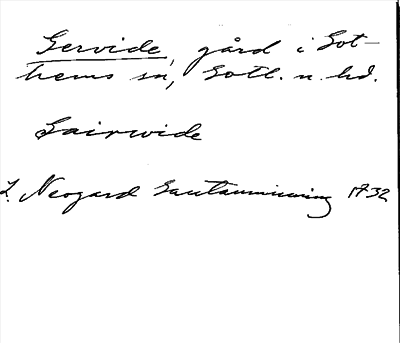 Gervide, gård i Got-
hems sn, Gotl. n. hd.
Gairvide
L. Neogard Gautauminning 1732